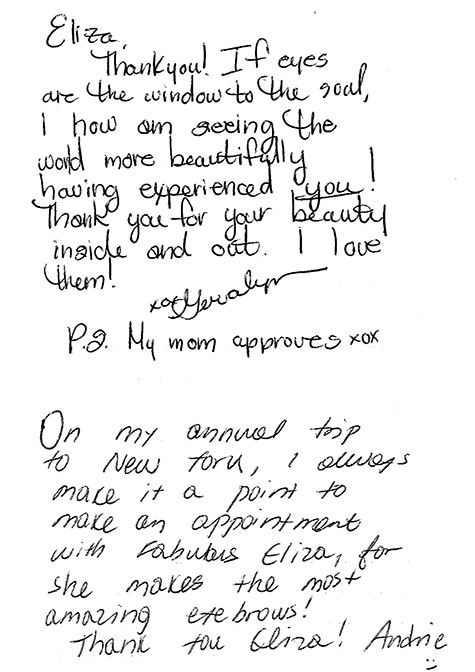 Eliza,
Thankyou! If eyes
are the window to the soul,
I how am seeing the
world more beautifully
having experienced you!
Thank you for your beauty
inside and out. I love
them!
xox
P.S. My mom approves xox
On my annual trip
to New York, I always
make it a point to
make an appointment
with Fabulous Eliza, for
she makes the most
amazing eyebrows!
Thank you Eliza! Andrie